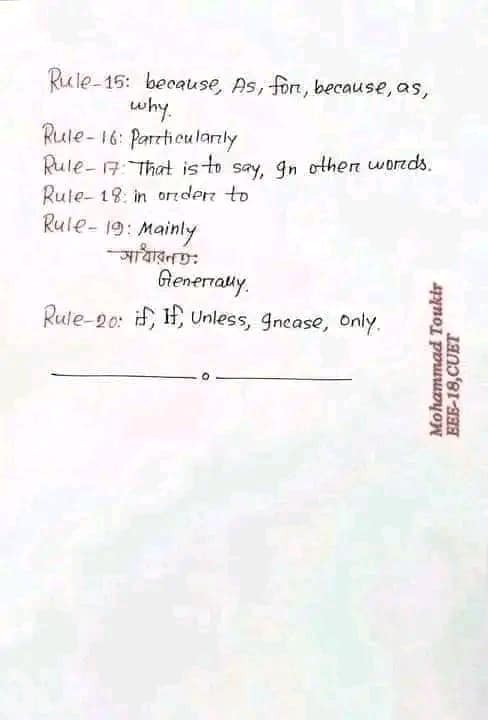 Rule-15: because, As, for, because, as,
why.
Rule-16: Particularly
Rule-17: That is to say, In other words.
Rule-18: in order to
Rule-19: Mainly
সাধারনত:
Generally.
Rule-20: if, If, Unless, Incase, Only.
Mohammad Toukir
EEE-18,CUET